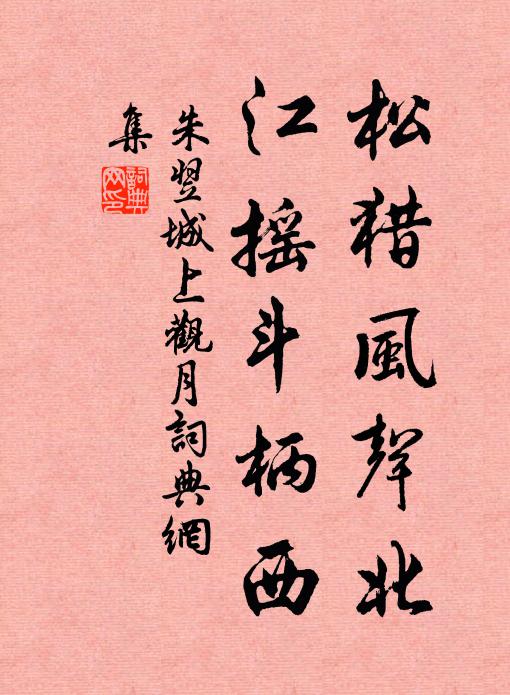 松猎風聲北
江摇斗柄西
朱翌城上觀月詞典網
集
詞典網印